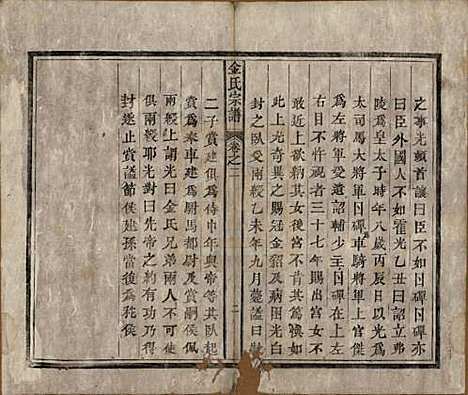 之事光頓首讓曰臣不如日磾日磾亦
曰臣外國人不如霍光乙丑曰詔立弗
陵爲皇太子時年八歲丙辰日以光爲
大司馬大將軍日磾車騎將軍上官桀
爲左將軍受遺詔輔少主日磾在上左
右目不忤視者三十七年賜出宮女不
敢近上欲納其女後宮不肯其篤慎如
此上尤奇異之賜冠金貂及病困光白
封之臥受兩綬乙未年九月薨謚曰敬
金氏宗譜
卷之二
二
二子賞建俱爲侍中年與帝等共臥起
賞爲奉車建爲尉馬都尉及賞嗣侯佩
兩綬上謝光曰金氏兄弟兩人不可使
俱兩綬耶光對曰先帝之約有功乃得
封遂止賞謚節侯建孫當後爲秺侯